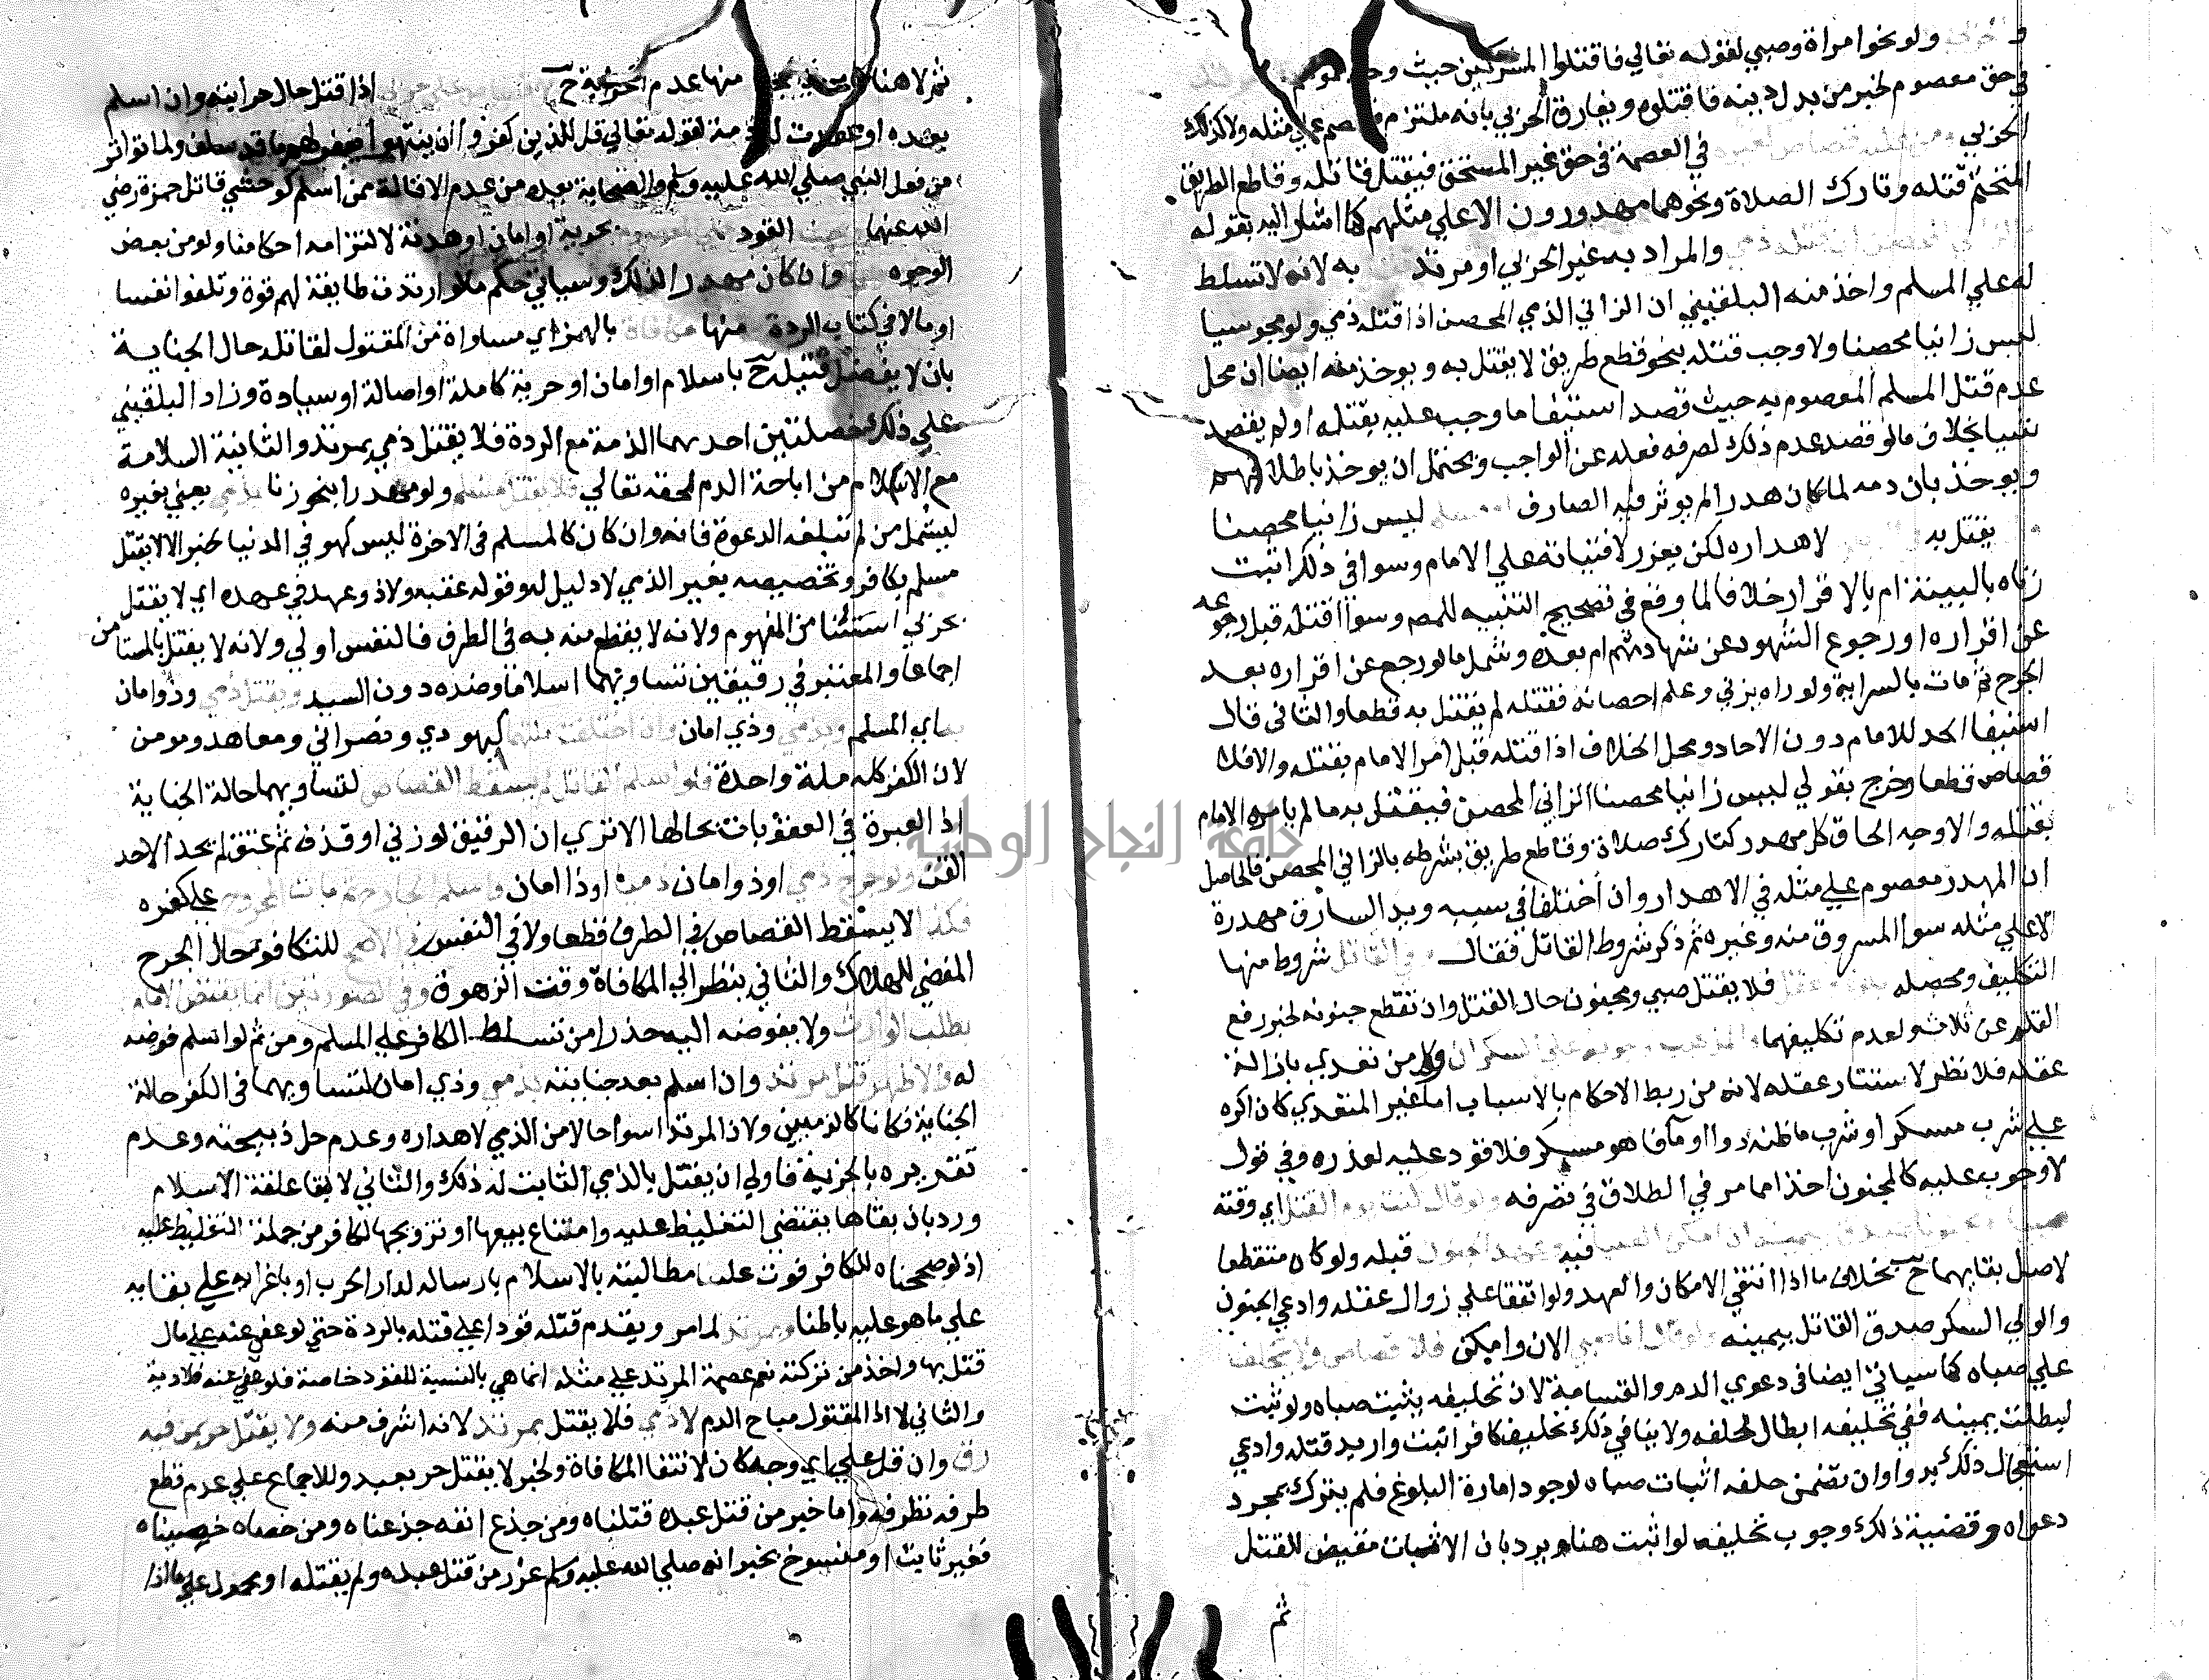 ولو نحو امراة وصبي لقوله تعالي فاقتلوا المشركين حيث
في حق معصوم لخبر من بدل دينه فاقتلوه ويفارق الحربي بانه ملتزم علي مثله ولا كذلك
الحربي في العصمة في حق غير المستحق فيقتل قاتله وقاطع الطريق
المتحتم قتله وتارك الصلاة ونحوهما مهدورون الا علي مثلهم كما اشار اليه بقوله
والمراد به غير الحربي او مرتد به لانه لا تسلط
له علي المسلم واخذ منه البلقيني ان الزاني الذمي المحصن اذا قتله ذمي ولو مجوسيا
ليس زانيا محصنا ولا وجب قتله بنحو قطع طريق لا يقتل به ويوخذ منه ايضا ان محل
عدم قتل المسلم المعصوم به حيث قصد استيفا ما وجب عليه بقتله او لم يقصد
شيا بخلاف ما لو قصد عدم ذلك لصرفه فعله عن الواجب ويحتمل ان يوخذ باطلاقهم
ويوخذ بان دمه لما كان هدرا لم يوثر فيه الصارف ليس زانيا محصنا
يقتل به لاهداره لكن يعزر لافتياته علي الامام وسوا في ذلك اثبت
زناه بالبينة ام بالاقرار خلافا لما وقع في تصحيح التنبيه للمصـ وسوا اقتله قبل رجوعه
عن اقراره او رجوع الشهود عن شهادتهم ام بعده وشمل ما لو رجع عن اقراره بعد
الجرح ثم مات بالسراية ولو راه يزني وعلم احصانه فقتله لم يقتل به قطعا والثاني قال
استيفا الحد للامام دون الاحاد ومحل الخلاف اذا قتله قبل امر الامام بقتله والا فلا
قصاص قطعا وخرج بقولي ليس زانيا محصنا الزاني المحصن فيقتل به ما لم يامره الامام
بقتله والاوجه الحاق كل مهدر كتارك صلاة وقاطع طريق بشرطه بالزاني المحصن فالحاصل
ان المهدر معصوم علي مثله في الاهدار وان اختلفا في سببه ويد السارق مهدرة
الا علي مثله سوا المسروق منه وغيره ثم ذكر شروط القاتل فقال وفي القاتل شروط منها
التكليف ومحصله فلا يقتل صبي ومجنون حال القتل وان تقطع جنونه لخبر رفع
القلم عن ثلاث ولعدم تكليفهما والمذهب وجوبه علي السكران وكل من تعدي بازالة
عقله فلا نظر لاستتار عقله لانه من ربط الاحكام بالاسباب اما غير المتعدي كان اكره
علي شرب مسكر او شرب ما ظنه دوا او ما فاذا هو مسكر فلا قود عليه لعذره وفي قول
لا وجوب عليه كالمجنون اخذا مما مر في الطلاق في تصرفه ولو قال كنت يوم القتل اي وقته
صبيا او مجنونا صدق بيمينه ان امكن الصبا فيه وعهد الجنون قبله ولو كان متقطعا
لاصل بقايهما ح بخلاف ما اذا انتفي الامكان والعهد ولو اتفقا علي زوال عقله وادعي الجنون
والولي السكر صدق القاتل بيمينه ولو قال انا صبي الان وامكن فلا قصاص ولا يحلف
علي صباه كما سياتي ايضا في دعوي الدم والقسامة لان تحليفه يثبت صباه ولو ثبت
لبطلت يمينه ففي تحليفه ابطال لحلفه ولا ينافي ذلك تحليف كافر انبت واريد قتله وادعي
استعجال ذلك بدوا وان تضمن حلفه اثبات صباه لوجود امارة البلوغ فلم يترك بمجرد
دعواه وقضية ذلك وجوب تحليفه لو انبت هنا ويرد بان الانبات مقتض للقتل
ثم
ثم لا هنا منها عدم الحرابة ح اذا قتل حال حرابته وان اسلم
بعده او عقدت له ذمة لقوله تعالي قل للذين كفروا ان ينتهوا يغفر لهم ما قد سلف ولما تواتر
من فعل النبي صلي الله عليه وسلم والصحابة بعده من عدم الاقادة ممن اسلم كوحشي قاتل حمزة رضي
الله عنهما القود بجزية او امان او هدنة لالتزامه احكامنا ولو من بعض
الوجوه وان كان مهدرا لذلك وسياتي حكم ما لو ارتدت طايفة لهم قوة وتلفوا نفسا
او مالا في كتاب الردة منها مكافاة بالهمز اي مساواة من المقتول لقاتله حال الجناية
بان لا يفضل قتيله ح باسلام او امان او حرية كاملة او اصالة او سيادة وزاد البلقيني
علي ذلك خصلتين احدهما الذمة مع الردة فلا يقتل ذمي بمرتد والثانية السلامة
مع الاسلام من اباحة الدم لحقه تعالي فلا يقتل مسلم ولو مهدرا بنحو زنا بذمي يعني بغيره
ليشمل من لم تبلغه الدعوة فانه وان كان كالمسلم في الاخرة ليس كهو في الدنيا لخبر الا لا يقتل
مسلم بكافر وتخصيصه بغير الذمي لا دليل له وقوله عقبه ولا ذو عهد في عهده اي لا يقتل
بحربي استثنا من المفهوم ولانه لا يقطع منه به في الطرف فالنفس اولي ولانه لا يقتل بالمستامن
اجماعا والمعتبر في رقيقين تساويهما اسلاما وضده دون السيد ويقتل ذمي وذو امان
به اي المسلم وبذمي وذي امان وان اختلفت ملتهما كيهودي ونصراني ومعاهد ومومن
لان الكفر كله ملة واحدة فلو اسلم القاتل لم يسقط القصاص لتساويهما حالة الجناية
اذ العبرة في العقوبات بحالها الا تري ان الرقيق لو زني او قذف ثم عتق لم يحد الا حد
القن ولو جرح ذمي او ذو امان ذميا او ذا امان واسلم الجارح ثم مات المجروح علي كفره
فكذا لا يسقط القصاص في الطرف قطعا ولا في النفس في الاصح للتكافو بحال الجرح
المفضي للهلاك والثاني ينظر الي المكافاة وقت الزهوق وفي الصورتين انما يقتص الامام
بطلب الوارث ولا يفوضه اليه حذرا من تسلط الكافر علي المسلم ومن ثم لو اسلم فوضه
له والاظهر قتل مرتد وان اسلم بعد جنايته بذمي وذي امان لتساويهما في الكفر حالة
الجناية فكانا كالذميين ولان المرتد اسوا حالا من الذمي لاهداره وعدم حل ذبيحته وعدم
تقريره بالجزية فاولي ان يقتل بالذمي الثابت له ذلك والثاني لا لبقا علقة الاسلام
ورد بان بقاها يقتضي التغليظ عليه وامتناع بيعها او تزويجها لكافر من جملة التغليظ عليه
اذ لو صححناه للكافر فوت علينا مطالبته بالاسلام بارساله لدار الحرب او باغرايه علي بقايه
علي ما هو عليه باطنا وبمرتد لما مر ويقدم قتله قودا علي قتله بالردة حتي لو عفي عنه علي مال
قتل بها واخذ من تركته نعم عصمة المرتد علي مثله انما هي بالنسبة للقود خاصة فلو عفي عنه فلا دية
والثاني لا اذ المقتول مباح الدم لا ذمي فلا يقتل بمرتد لانه اشرف منه ولا يقتل حر بمن فيه
رق وان قل علي اي وجه كان لانتفا المكافاة ولخبر لا يقتل حر بعبد وللاجماع علي عدم قطع
طرفه بطرفه واما خبر من قتل عبده قتلناه ومن جذع انفه جذعناه ومن خصاه خصيناه
فغير ثابت او منسوخ بخبر انه صلي الله عليه وسلم عزر من قتل عبده ولم يقتله او محمول علي ما اذا
جامعة النجاح الوطنية